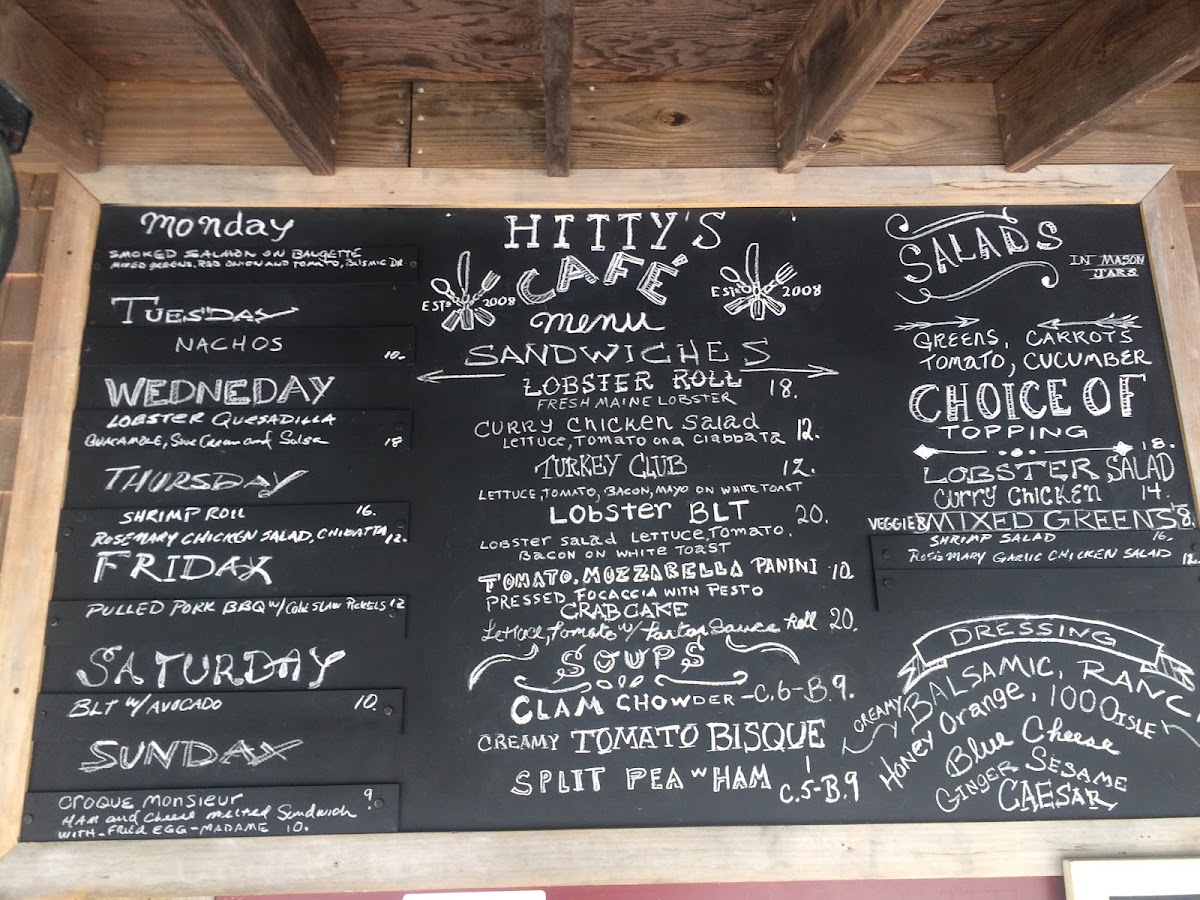 monday
SMOKED SALMON ON BAUGETTE
MIXED GREENS, RED ONION AND TOMATO, BALSMIC DR.
TUESDAY
NACHOS 10.
WEDNEDAY
LOBSTER QUESADILLA
Sour Cream and Salsa 18
THURSDAY
SHRIMP ROLL 16.
ROSEMARY CHICKEN SALAD, CHIBATTA, 12.
FRIDAY
PULLED PORK BBQ W/ COLE SLAW PICKELS 12
SATURDAY
BLT W/ AVOCADO 10.
SUNDAY
CROQUE MONSIEUR 9.
HAM and Cheese melted Sandwich
WITH-FRIED EGG-MADAME 10.
HITTY'S
CAFE'
ESTD 2008
ESTD 2008
menu
SANDWICHES
LOBSTER ROLL 18.
FRESH MAINE LOBSTER
CURRY CHICKEN SALAD 12.
LETTUCE, TOMATO ON A CIABBATA
TURKEY CLUB 12.
LETTUCE, TOMATO, BACON, MAYO ON WHITE TOAST
LOBSTER BLT 20.
LOBSTER SALAD LETTUCE, TOMATO,
BACON ON WHITE TOAST
TOMATO, MOZZARELLA PANINI 10.
PRESSED FOCACCIA WITH PESTO
CRABCAKE
Lettuce, Tomato w/ Tartar Sauce Roll 20.
SOUPS
CLAM CHOWDER -C.6-B.9.
CREAMY TOMATO BISQUE
SPLIT PEA W HAM C.5-B.9
SALADS
IN MASON
JARS
GREENS, CARROTS
TOMATO, CUCUMBER
CHOICE OF
TOPPING
18.
LOBSTER SALAD
CURRY CHICKEN 14.
VEGGIE 8 MIXED GREENS 8.
SHRIMP SALAD 16.
ROSEMARY GARLIC CHICKEN SALAD 12.
DRESSING
CREAMY BALSAMIC, RANC
Honey Orange, 1000 ISLE
Blue Cheese
GINGER SESAME
CAESAR